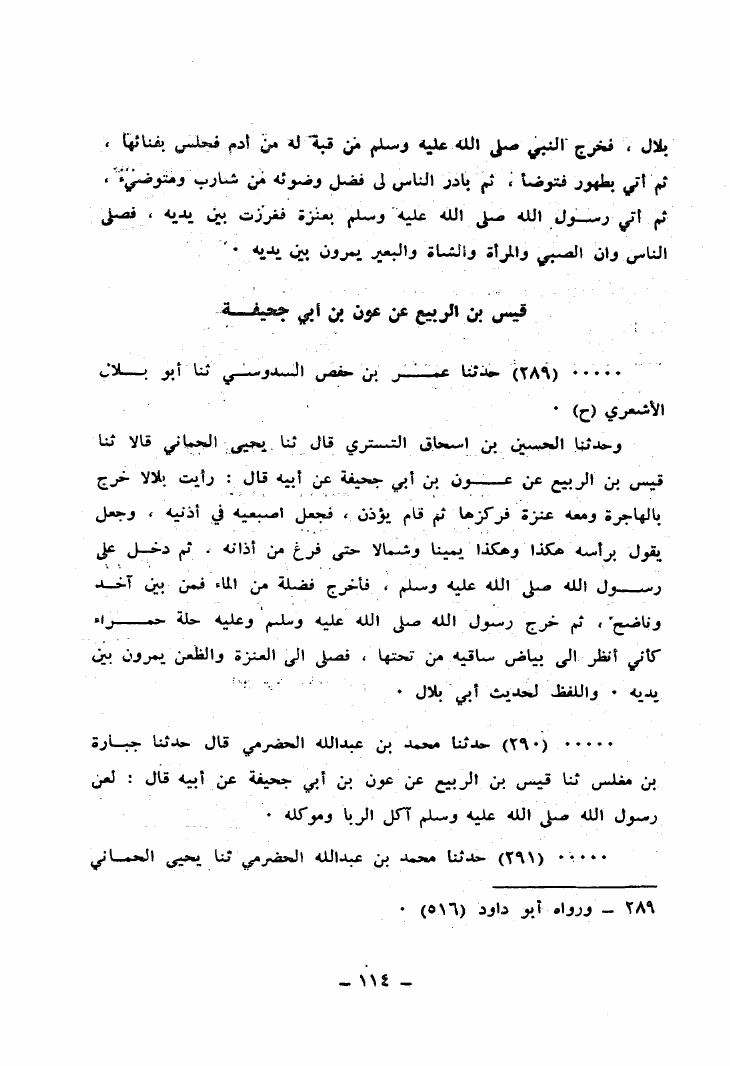 بلال ، فخرج النبي صلى الله عليه وسلم من قبة له من أدم فجلس بفنائها ،
ثم أتي بطهور فتوضأ ، ثم بادر الناس لى فضل وضوئه من شارب ومتوضيء ،
ثم أتي رسول الله صلى الله عليه وسلم بعنزة فغرزت بين يديه ، فصلى
الناس وان الصبي والمرأة والشاة والبعير يمرون بين يديه ٠
قيس بن الربيع عن عون بن أبي جحيفة
٠٠٠٠٠ (٢٨٩) حدثنا عمر بن حفص السدوسي ثنا أبو بلال
الأشعري (ح) ٠
وحدثنا الحسين بن اسحاق التستري قال ثنا يحيى الحماني قالا ثنا
قيس بن الربيع عن عون بن أبي جحيفة عن أبيه قال : رأيت بلالا خرج
بالهاجرة ومعه عنزة فركزها ثم قام يؤذن ، فجعل اصبعيه في أذنيه ، وجعل
يقول برأسه هكذا وهكذا يمينا وشمالا حتى فرغ من أذانه . ثم دخل على
رسول الله صلى الله عليه وسلم ، فأخرج فضلة من الماء فمن بين آخد
وناضح ، ثم خرج رسول الله صلى الله عليه وسلم وعليه حلة حمراء
كأني أنظر الى بياض ساقيه من تحتها ، فصلى الى العنزة والظعن يمرون بين
يديه ٠ واللفظ لحديث أبي بلال ٠
٠٠٠٠٠ (٢٩٠) حدثنا محمد بن عبدالله الحضرمي قال حدثنا جبارة
بن مغلس ثنا قيس بن الربيع عن عون بن أبي جحيفة عن أبيه قال : لعن
رسول الله صلى الله عليه وسلم آكل الربا وموكله ٠
٠٠٠٠٠ (٢٩١) حدثنا محمد بن عبدالله الحضرمي ثنا يحيى الحماني
٢٨٩ – ورواه أبو داود (٥١٦) ٠
– ١١٤ –